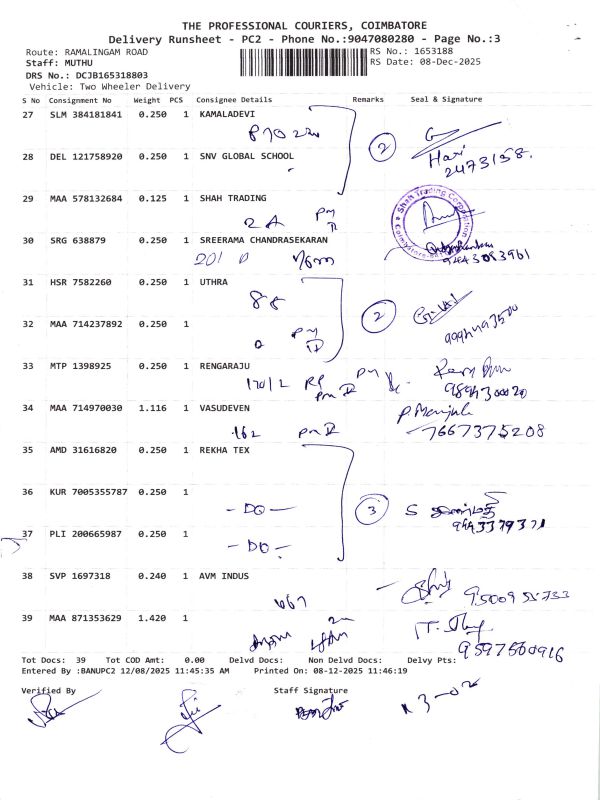 THE PROFESSIONAL COURIERS, COIMBATORE
Delivery Runsheet - PC2 - Phone No.:9047080280 - Page No.:3
Route: RAMALINGAM ROAD RS No.: 1653188
Staff: MUTHU RS Date: 08-Dec-2025
DRS No.: DCJB165318803
Vehicle: Two Wheeler Delivery
S No Consignment No Weight PCS Consignee Details Remarks Seal & Signature
27 SLM 384181841 0.250 1 KAMALADEVI
2
Hari
2473158.
28 DEL 121758920 0.250 1 SNV GLOBAL SCHOOL
29 MAA 578132684 0.125 1 SHAH TRADING
2A
Shah Trading Corporation
30 SRG 638879 0.250 1 SREERAMA CHANDRASEKARAN
201 D
9443083961
31 HSR 7582260 0.250 1 UTHRA
2
32 MAA 714237892 0.250 1
33 MTP 1398925 0.250 1 RENGARAJU
170/2
34 MAA 714970030 1.116 1 VASUDEVEN
162
P. Manjula
7667375208
35 AMD 31616820 0.250 1 REKHA TEX
36 KUR 7005355787 0.250 1
- DO -
3
S
9443379371
37 PLI 200665987 0.250 1
- DO -
38 SVP 1697318 0.240 1 AVM INDUS
9500955733
39 MAA 871353629 1.420 1
9597560916
Tot Docs: 39 Tot COD Amt: 0.00 Delvd Docs: Non Delvd Docs: Delvy Pts:
Entered By :BANUPC2 12/08/2025 11:45:35 AM Printed On: 08-12-2025 11:46:19
Verified By Staff Signature